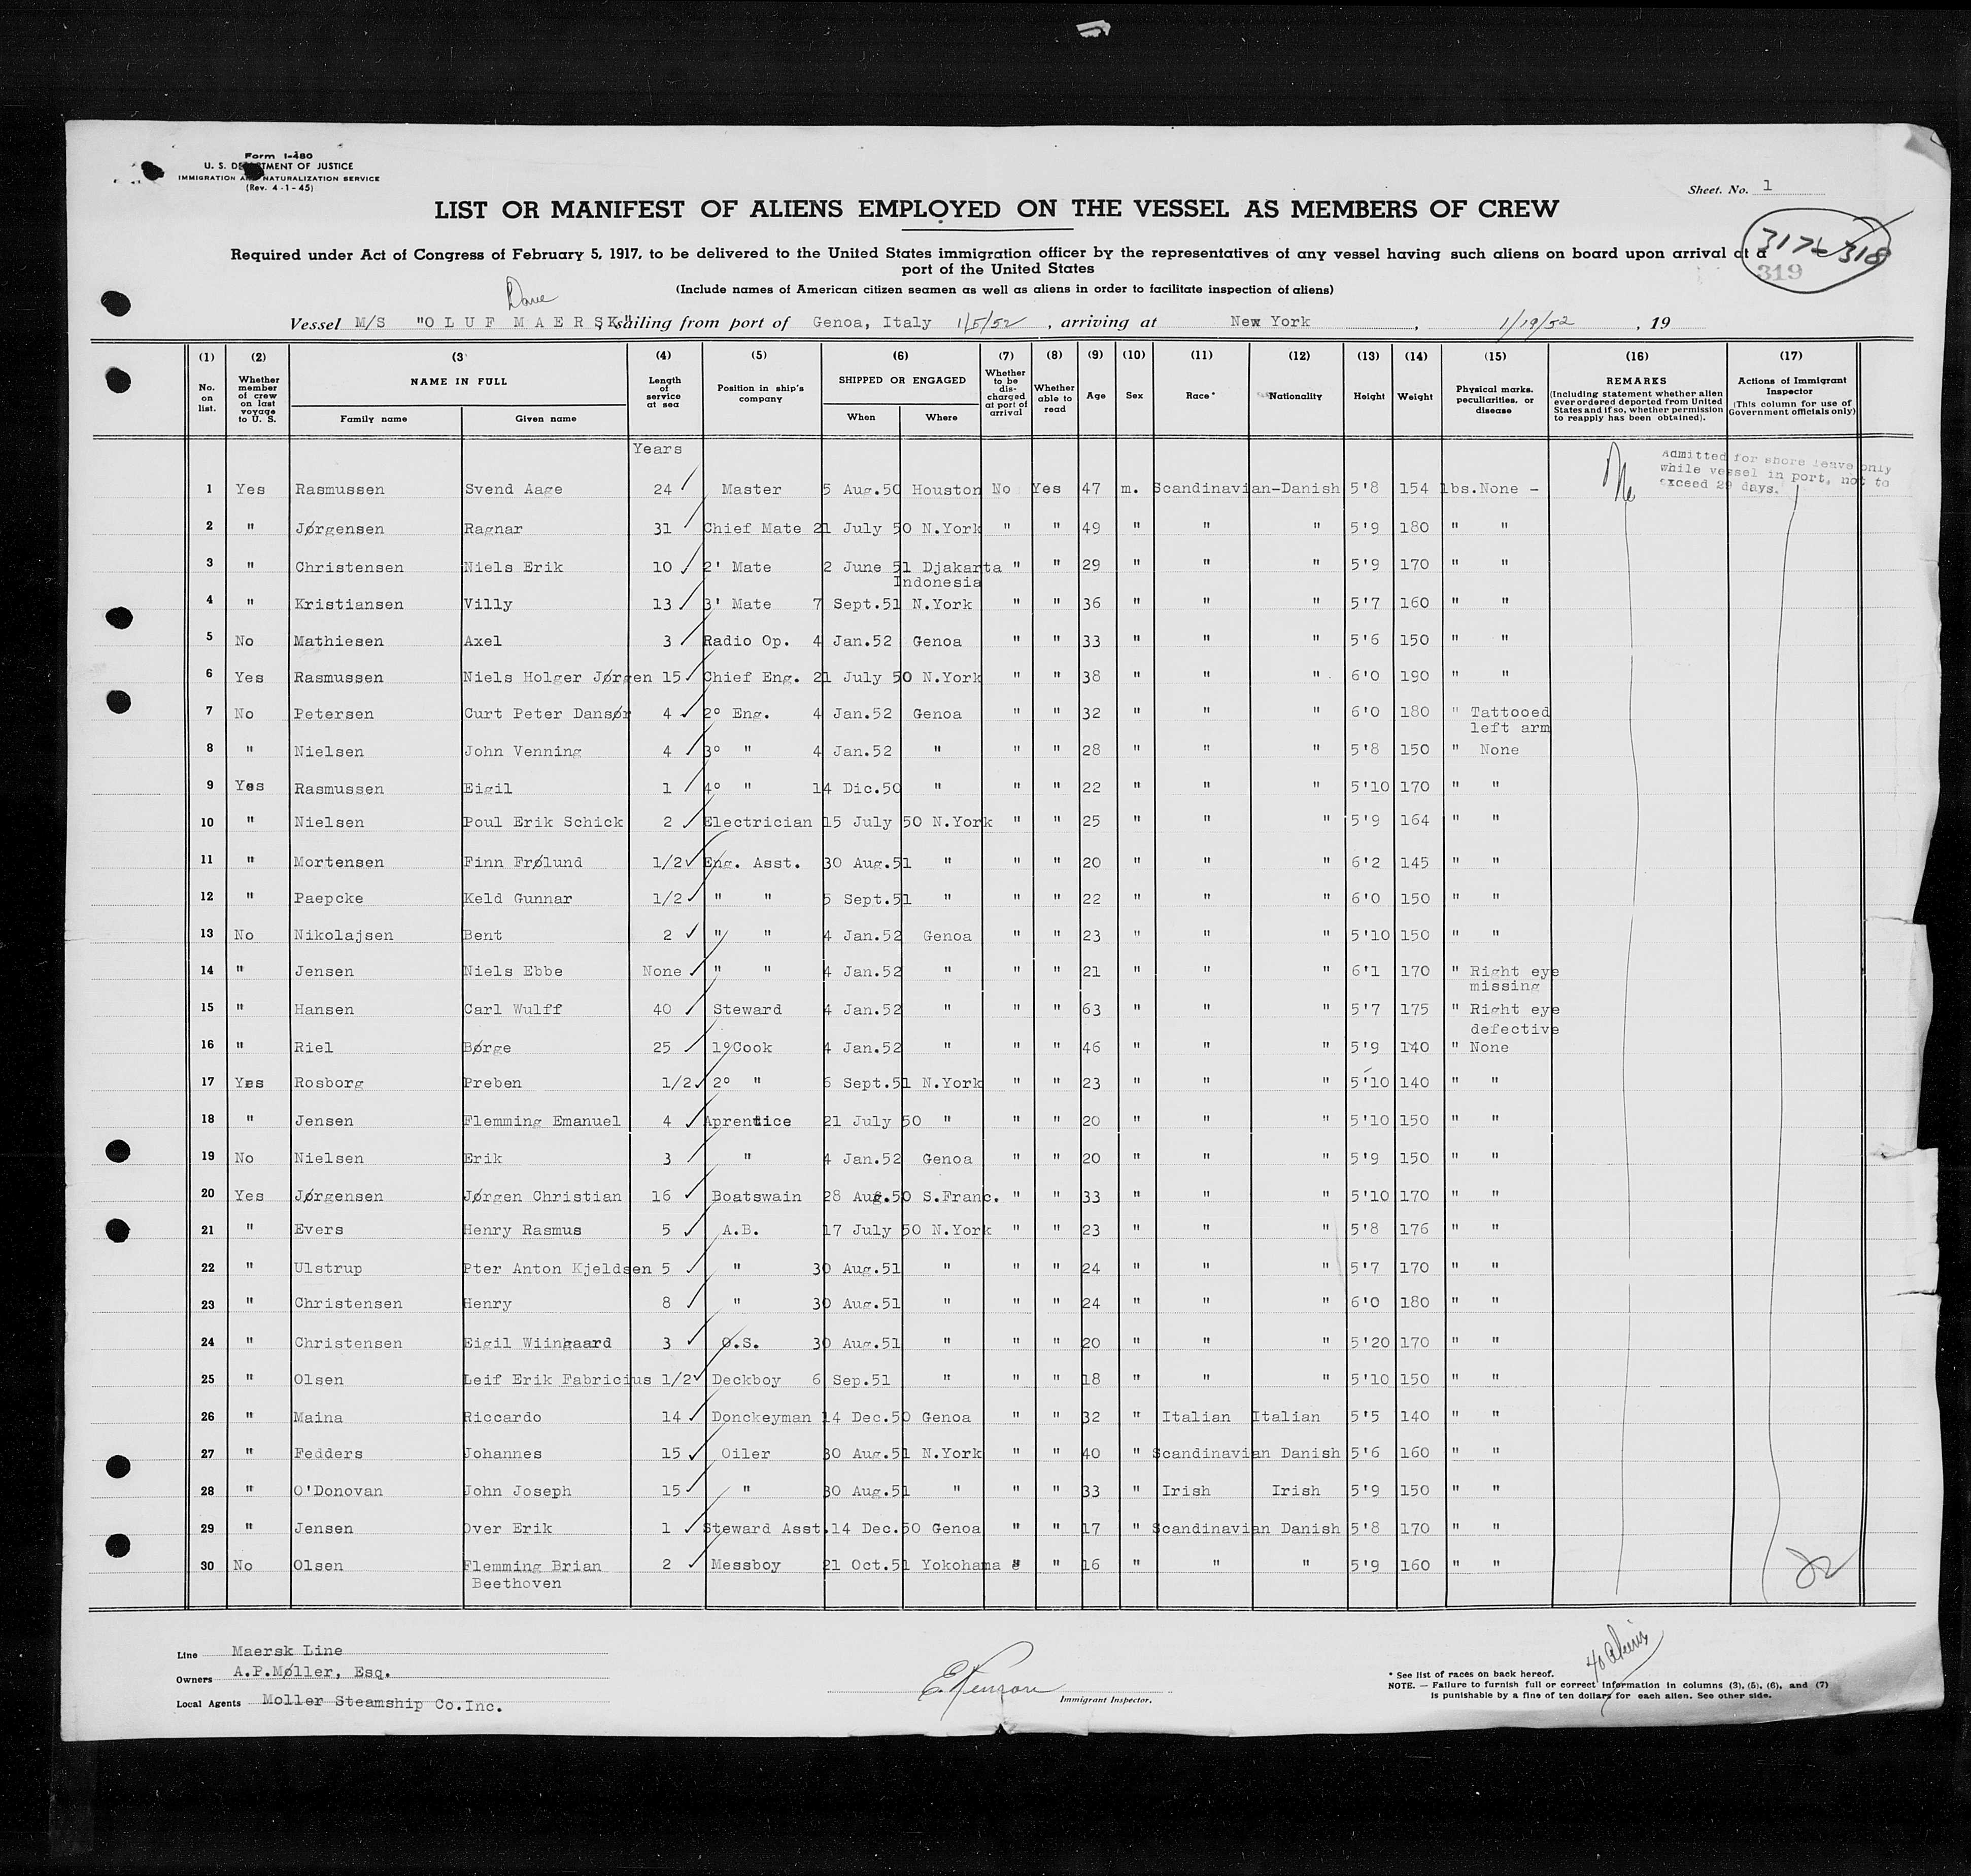 Form I-480
U. S. DEPARTMENT OF JUSTICE
IMMIGRATION AND NATURALIZATION SERVICE
(Rev. 4-1-45)
Sheet. No. 1
LIST OR MANIFEST OF ALIENS EMPLOYED ON THE VESSEL AS MEMBERS OF CREW
317 to 318
319
Required under Act of Congress of February 5, 1917, to be delivered to the United States immigration officer by the representatives of any vessel having such aliens on board upon arrival at a
port of the United States
(Include names of American citizen seamen as well as aliens in order to facilitate inspection of aliens)
Vessel M/S "O L U F M A E R S K", sailing from port of Genoa, Italy 1/5/52, arriving at New York, 1/19/52, 19
(1) (2) (3) (4) (5) (6) (7) (8) (9) (10) (11) (12) (13) (14) (15) (16) (17)
No. on list. Whether member of crew on last voyage to U. S. NAME IN FULL Family name Given name Length of service at sea Position in ship's company SHIPPED OR ENGAGED When Where Whether to be discharged at port of arrival Whether able to read Age Sex Race* Nationality Height Weight Physical marks, peculiarities, or disease REMARKS (Including statement whether alien ever ordered deported from United States and if so, whether permission to reapply has been obtained). Actions of Immigrant Inspector (This column for use of Government officials only)
Years
Admitted for shore leave only
while vessel in port, not to
exceed 29 days.
1 Yes Rasmussen Svend Aage 24 Master 5 Aug.50 Houston No Yes 47 m. Scandinavian-Danish 5'8 154 lbs. None -
2 " Jørgensen Ragnar 31 Chief Mate 21 July 50 N.York " " 49 " " " 5'9 180 " "
3 " Christensen Niels Erik 10 2' Mate 2 June 51 Djakarta " " 29 " " " 5'9 170 " "
Indonesia
4 " Kristiansen Villy 13 3' Mate 7 Sept.51 N.York " " 36 " " " 5'7 160 " "
5 No Mathiesen Axel 3 Radio Op. 4 Jan.52 Genoa " " 33 " " " 5'6 150 " "
6 Yes Rasmussen Niels Holger Jørgen 15 Chief Eng. 21 July 50 N.York " " 38 " " " 6'0 190 " "
7 No Petersen Curt Peter Dansør 4 2º Eng. 4 Jan.52 Genoa " " 32 " " " 6'0 180 " Tattooed
left arm
8 " Nielsen John Venning 4 3º " 4 Jan.52 " " " 28 " " " 5'8 150 " None
9 Yes Rasmussen Eigil 1 4º " 14 Dic.50 " " " 22 " " " 5'10 170 " "
10 " Nielsen Poul Erik Schick 2 Electrician 15 July 50 N.York " " 25 " " " 5'9 164 " "
11 " Mortensen Finn Frølund 1/2 Eng. Asst. 30 Aug.51 " " " 20 " " " 6'2 145 " "
12 " Paepcke Keld Gunnar 1/2 " " 5 Sept.51 " " " 22 " " " 6'0 150 " "
13 No Nikolajsen Bent 2 " " 4 Jan.52 Genoa " " 23 " " " 5'10 150 " "
14 " Jensen Niels Ebbe None " " 4 Jan.52 " " " 21 " " " 6'1 170 " Right eye
missing
15 " Hansen Carl Wulff 40 Steward 4 Jan.52 " " " 63 " " " 5'7 175 " Right eye
defective
16 " Riel Børge 25 1º Cook 4 Jan.52 " " " 46 " " " 5'9 140 " None
17 Yes Rosborg Preben 1/2 2º " 6 Sept.51 N.York " " 23 " " " 5'10 140 " "
18 " Jensen Flemming Emanuel 4 Aprentice 21 July 50 " " " 20 " " " 5'10 150 " "
19 No Nielsen Erik 3 " 4 Jan.52 Genoa " " 20 " " " 5'9 150 " "
20 Yes Jørgensen Jørgen Christian 16 Boatswain 28 Aug.50 S.Franc. " " 33 " " " 5'10 170 " "
21 " Evers Henry Rasmus 5 A.B. 17 July 50 N.York " " 23 " " " 5'8 176 " "
22 " Ulstrup Pter Anton Kjeldsen 5 " 30 Aug.51 " " " 24 " " " 5'7 170 " "
23 " Christensen Henry 8 " 30 Aug.51 " " " 24 " " " 6'0 180 " "
24 " Christensen Eigil Wiingaard 3 O.S. 30 Aug.51 " " " 20 " " " 5'20 170 " "
25 " Olsen Leif Erik Fabricius 1/2 Deckboy 6 Sep.51 " " " 18 " " " 5'10 150 " "
26 " Maina Riccardo 14 Donckeyman 14 Dec.50 Genoa " " 32 " Italian Italian 5'5 140 " "
27 " Fedders Johannes 15 Oiler 30 Aug.51 N.York " " 40 " Scandinavian Danish 5'6 160 " "
28 " O'Donovan John Joseph 15 " 30 Aug.51 " " " 33 " Irish Irish 5'9 150 " "
29 " Jensen Over Erik 1 Steward Asst. 14 Dec.50 Genoa " " 17 " Scandinavian Danish 5'8 170 " "
30 No Olsen Flemming Brian 2 Messboy 21 Oct.51 Yokohama " " 16 " " " 5'9 160 " "
Beethoven
Line Maersk Line
Owners A.P.Møller, Esq.
Local Agents Moller Steamship Co.Inc.
Immigrant Inspector.
* See list of races on back hereof.
NOTE. — Failure to furnish full or correct information in columns (3), (5), (6), and (7)
is punishable by a fine of ten dollars for each alien. See other side.